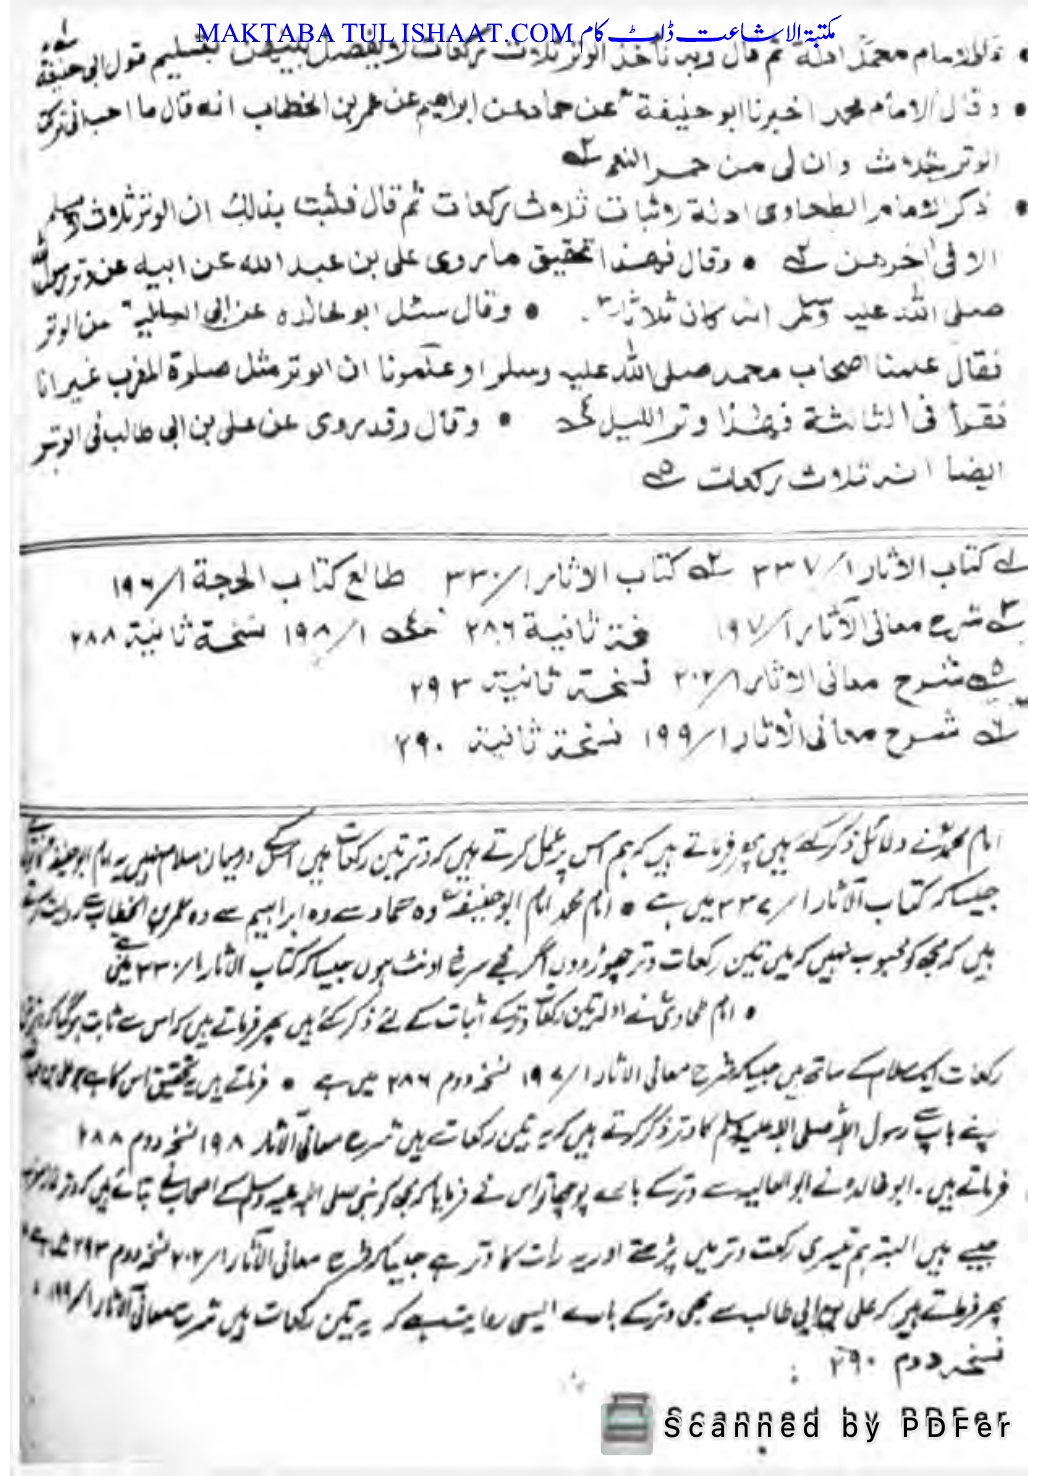 MAKTABA TUL ISHAAT.COM مکتبۃ الاشاعت ڈاٹ کام
وقال الامام محمد اخبرنا ابو حنیفة عن حماد عن ابراهیم عن عمر بن الخطاب انه قال ما احب انی ترکت
الوتر بثلاث وان لی من حمر النعم
ذکر الامام الطحاوی ادلة اثبات ثلاث رکعات ثم قال فثبت بذالک ان الوتر ثلاث لا یسلم
الا فی اخرهن • وقال فهذا تحقیق ما روی علی بن عبد الله عن ابیه عن وتر رسول الله
صلی الله علیه وسلم انه کان ثلاثا • وقال سئل ابو خالده عن ابی العالیة عن الوتر
فقال علمنا اصحاب محمد صلی الله علیه وسلم او علمونا ان الوتر مثل صلوة المغرب غیر انا
نقرأ فی الثالثة فهذا وتر اللیل • وقال وقد روی عن علی بن ابی طالب فی الوتر
ایضا انه ثلاث رکعات
کتاب الاثار ۱/ ۳۳۷ کتاب الاثار ۱/ ۳۳۰ طالع کتاب الحجة ۱/ ۱۹۶
شرح معانی الآثار ۱/ ۱۹۷ ثانیة ۲۸۶ ۱/ ۱۹۸ نسخة ثانیة ۲۸۸
شرح معانی الاثار ۱/ ۲۰۲ نسخة ثانیة ۲۹۳
شرح معانی الآثار ۱/ ۱۹۹ نسخة ثانیة ۲۹۰
امام محمد نے دلائل ذکر کئے ہیں پھر فرماتے ہیں کہ ہم اس پر عمل کرتے ہیں کہ وتر تین رکعات ہیں اسکے درمیان سلام نہیں یہ امام ابو حنیفہ
جیسا کہ کتاب الآثار ۱/ ۳۳۷ میں ہے • امام محمد امام ابو حنیفہ سے وہ حماد سے وہ ابراہیم سے وہ عمر بن الخطاب سے روایت کرتے
ہیں کہ مجھ کو محبوب نہیں کہ میں تین رکعات وتر چھوڑ دوں اگر مجھے سرخ اونٹ ہوں جیسا کہ کتاب الاثار ۱/ ۳۳۰ میں ہے
• امام طحاوی نے ادلہ تین رکعات وتر کے اثبات کے لئے ذکر کئے ہیں پھر فرماتے ہیں کہ اس سے ثابت ہو گیا کہ
رکعات ایک سلام کے ساتھ ہیں جیسا کہ شرح معانی الاثار ۱/ ۱۹۷ نسخہ دوم ۲۸۶ میں ہے • فرماتے ہیں یہ تحقیق اس کا ہے
اپنے باپ سے رسول اللہ صلی اللہ علیہ وسلم کا وتر ذکر کرتے ہیں کہ یہ تین رکعات ہیں شرح معانی الآثار ۱۹۸ نسخہ دوم ۲۸۸
فرماتے ہیں۔ ابو خالدہ نے ابو العالیہ سے وتر کے بارے پوچھا تو اس نے فرمایا کہ مجھ کو نبی صلی اللہ علیہ وسلم کے اصحاب نے بتائے ہیں کہ وتر نماز مغرب
جیسے ہیں البتہ ہم تیسری رکعت وتر میں پڑھتے اور یہ رات کا وتر ہے جیسا کہ شرح معانی الآثار ۱/ ۲۰۲ نسخہ دوم ۲۹۳ میں ہے
پھر فرماتے ہیں کہ علی بن ابی طالب سے بھی وتر کے بارے ایسی روایت ہے کہ یہ تین رکعات ہیں شرح معانی الآثار ۱/ ۱۹۹
نسخہ دوم ۲۹۰
Scanned by PDFer